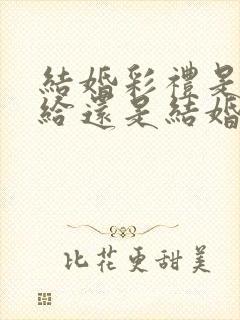 結婚彩禮是
給還是結婚
比花更甜美